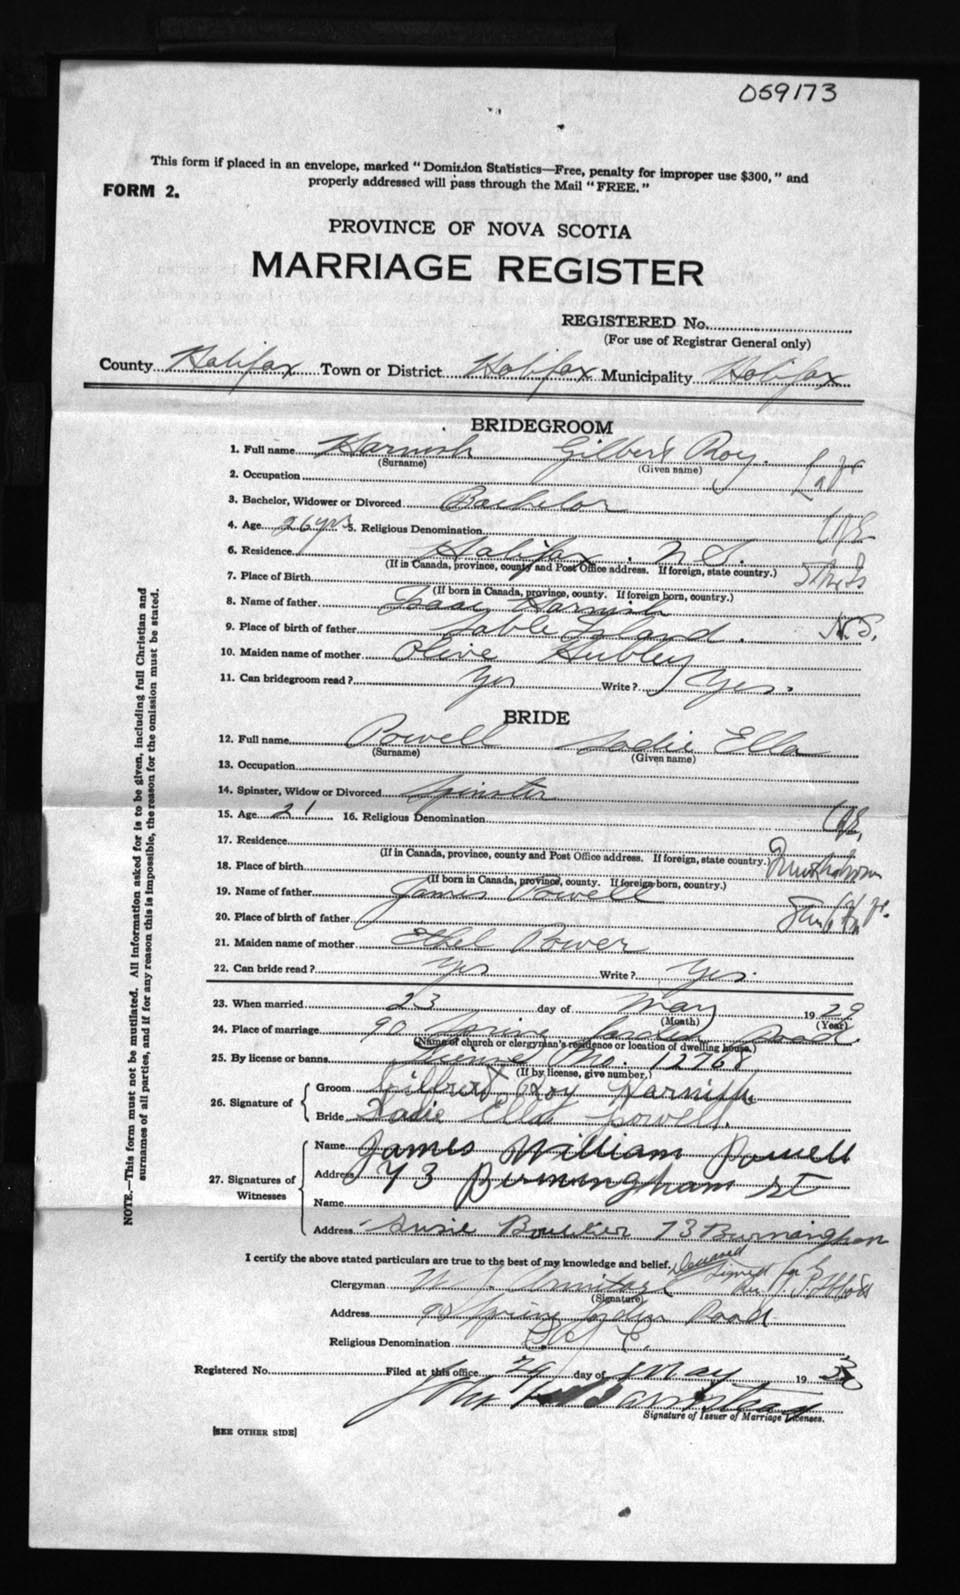 059173
This form if placed in an envelope, marked "Dominion Statistics—Free, penalty for improper use $300," and
FORM 2. properly addressed will pass through the Mail "FREE."
PROVINCE OF NOVA SCOTIA
MARRIAGE REGISTER
REGISTERED No.
(For use of Registrar General only)
County Halifax Town or District Halifax Municipality Halifax
BRIDEGROOM
1. Full name Harnish Gilbert Roy.
(Surname) (Given name)
2. Occupation
3. Bachelor, Widower or Divorced Bachelor
4. Age 26 yrs 5. Religious Denomination C of E
6. Residence Halifax. N.S.
(If in Canada, province, county and Post Office address. If foreign, state country.)
7. Place of Birth
(If born in Canada, province, county. If foreign born, country.)
8. Name of father Isaac Harnish
9. Place of birth of father Sable Island. N.S.
10. Maiden name of mother Olive Hubley
11. Can bridegroom read? Yes Write? Yes.
BRIDE
12. Full name Powell Sadie Ella
(Surname) (Given name)
13. Occupation
14. Spinster, Widow or Divorced Spinster
15. Age 21 16. Religious Denomination C of E.
17. Residence
(If in Canada, province, county and Post Office address. If foreign, state country.)
18. Place of birth
(If born in Canada, province, county. If foreign born, country.)
19. Name of father James Powell
20. Place of birth of father
21. Maiden name of mother Ethel Power
22. Can bride read? Yes Write? Yes.
23. When married 23 day of May 1929
(Month) (Year)
24. Place of marriage 90 Spring Garden Road.
(Name of church or clergyman's residence or location of dwelling house.)
25. By license or banns License No. 12768
(If by license, give number.)
26. Signature of Groom Gilbert Roy Harnish
Bride Sadie Ella Powell.
27. Signatures of Witnesses Name James William Powell
Address 73 Birmingham St
Name
Address Susie 73 Burmingham
I certify the above stated particulars are true to the best of my knowledge and belief. Deceased
Clergyman W. Armitage Signed for
(Signature)
Address 90 Spring Garden Road.
Religious Denomination C of E.
Registered No. Filed at this office 29 day of May 19
John
Signature of Issuer of Marriage Licenses.
[SEE OTHER SIDE]
NOTE.—This form must not be mutilated. All information asked for is to be given, including full Christian and
surnames of all parties, and if for any reason this is impossible, the reason for the omission must be stated.